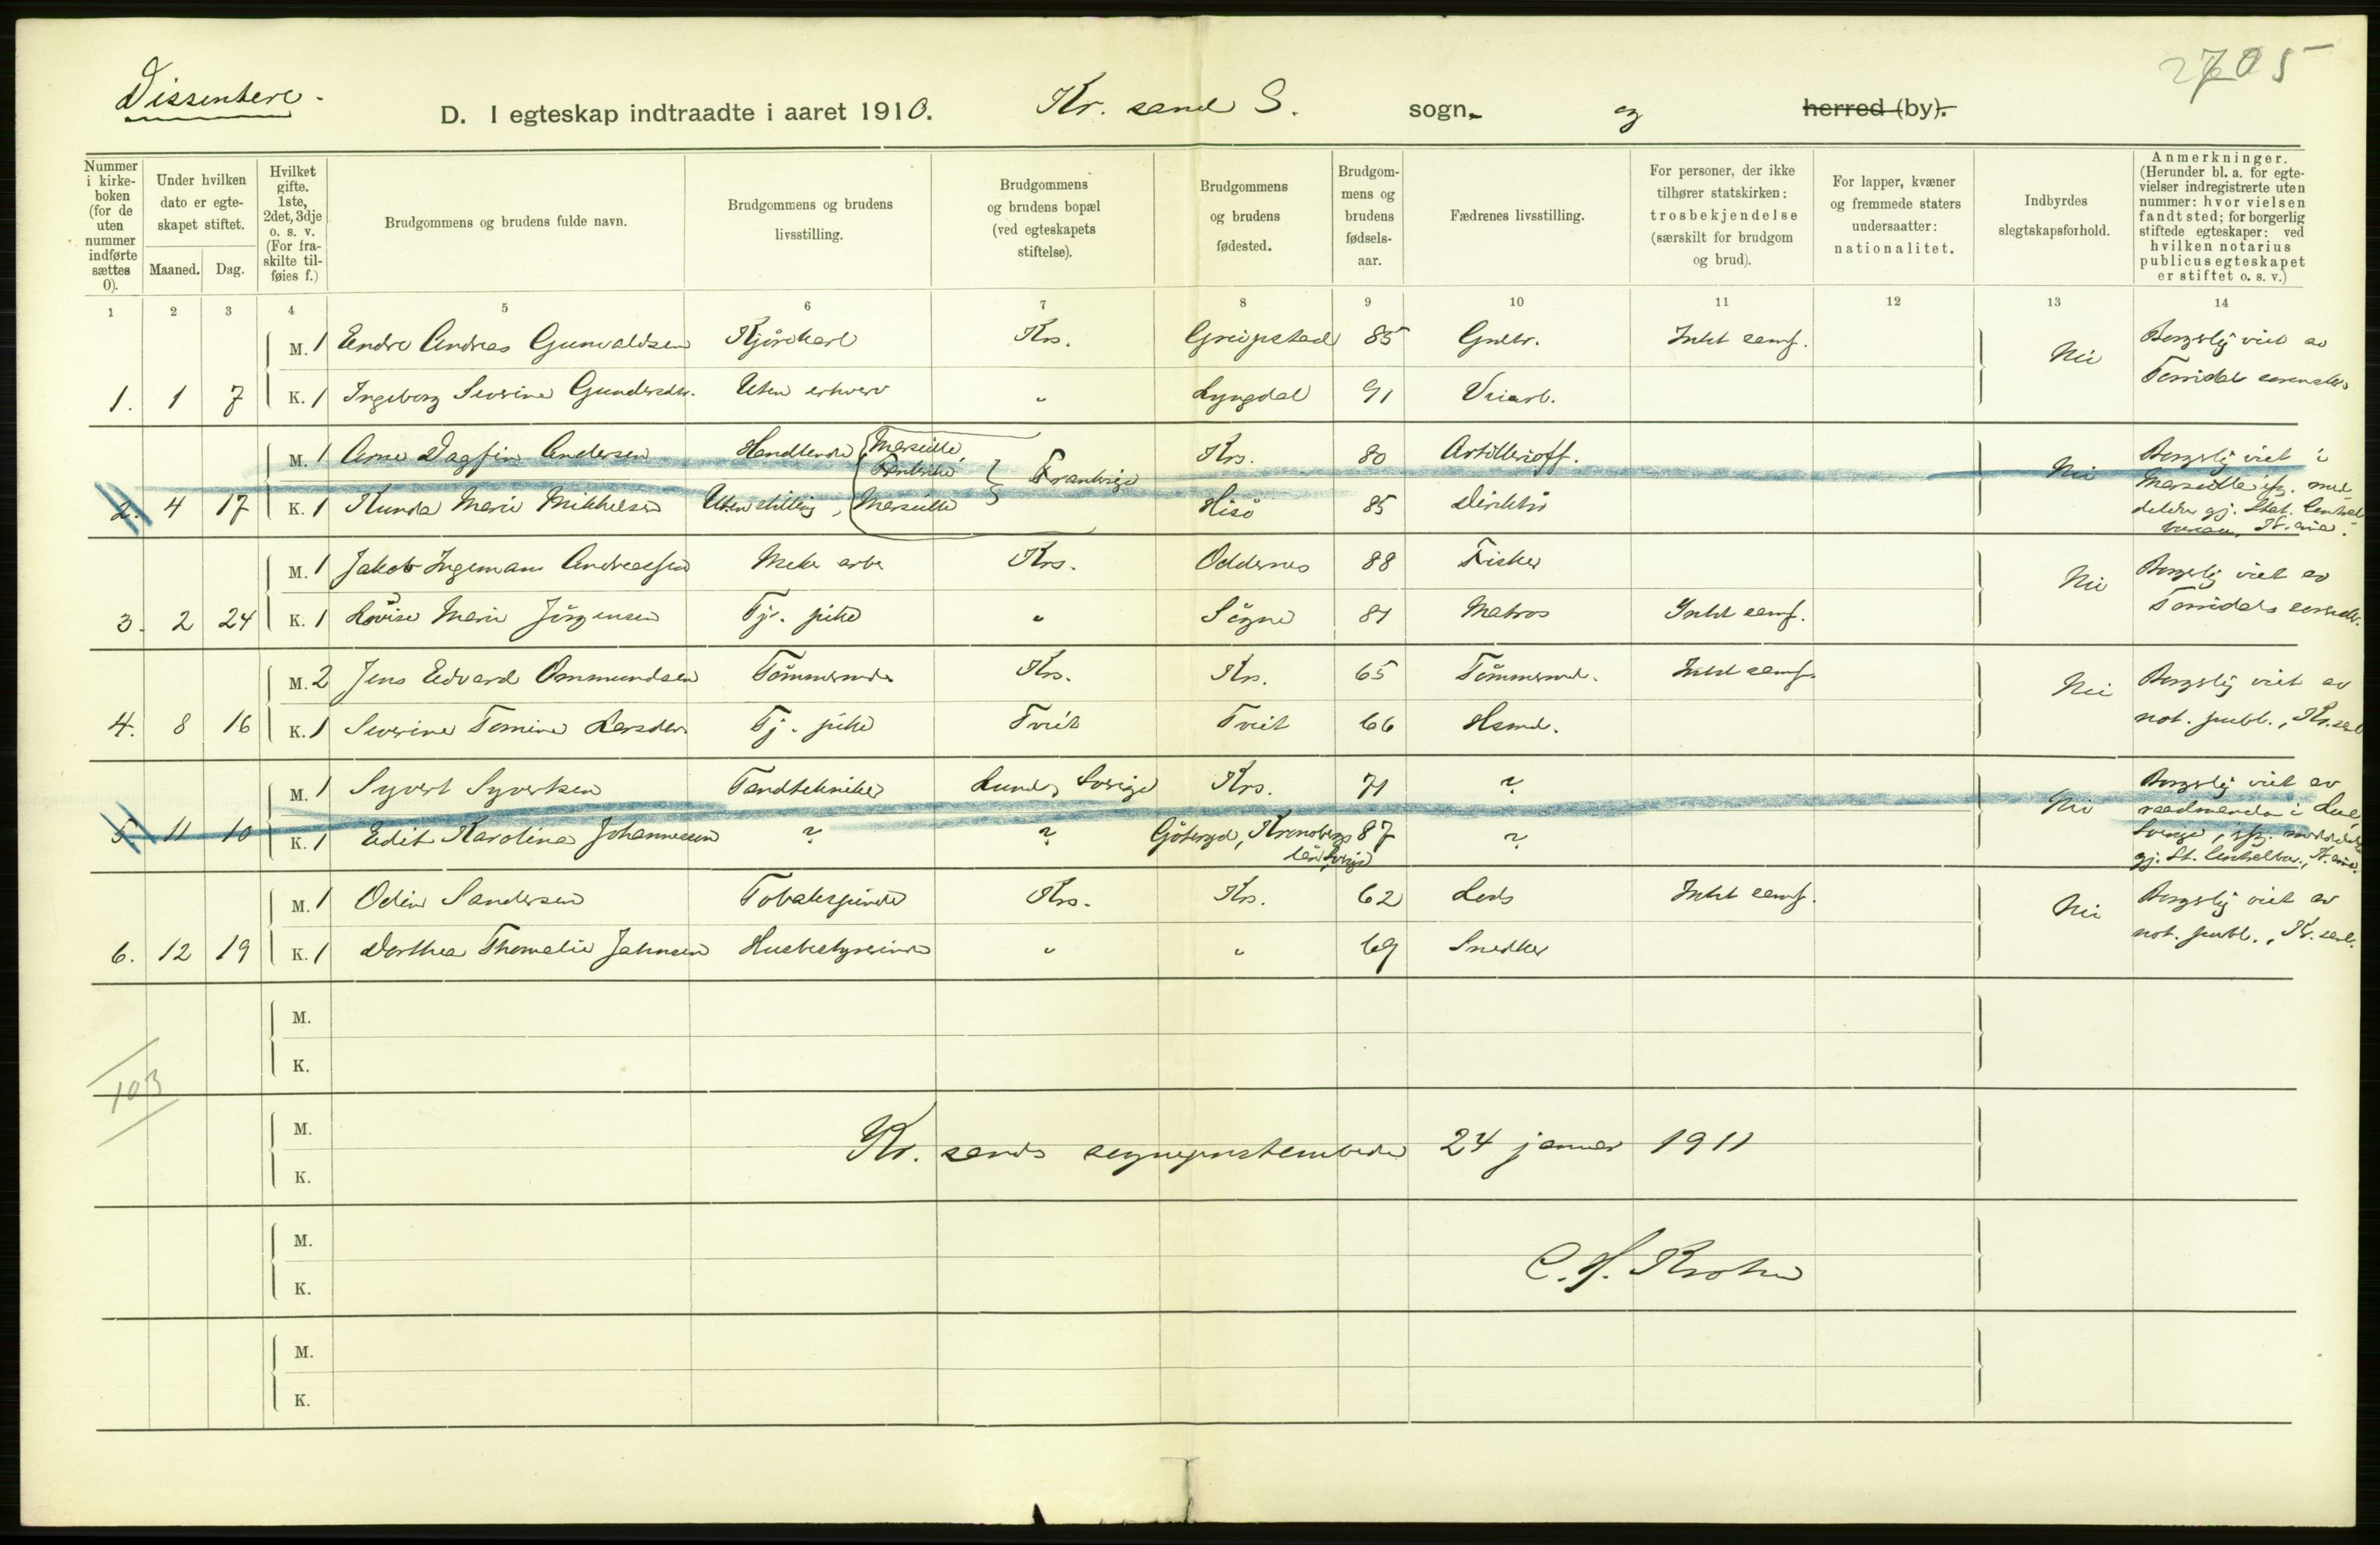 Dissentere.
2705
D. I egteskap indtraadte i aaret 1910. Kr. sand S. sogn. og herred (by).
Nummer i kirkeboken (for de uten nummer indførte sættes 0).
Under hvilken dato er egteskapet stiftet.
Maaned. Dag.
Hvilket gifte. 1ste, 2det, 3dje o. s. v. (For fraskilte tilføies f.)
Brudgommens og brudens fulde navn.
Brudgommens og brudens livsstilling.
Brudgommens og brudens bopæl (ved egteskapets stiftelse).
Brudgommens og brudens fødested.
Brudgommens og brudens fødselsaar.
Fædrenes livsstilling.
For personer, der ikke tilhører statskirken: trosbekjendelse (særskilt for brudgom og brud).
For lapper, kvæner og fremmede staters undersaatter: nationalitet.
Indbyrdes slegtskapsforhold.
Anmerkninger. (Herunder bl. a. for egtevielser indregistrerte uten nummer: hvor vielsen fandt sted; for borgerlig stiftede egteskaper: ved hvilken notarius publicus egteskapet er stiftet o. s. v.)
1 2 3 4 5 6 7 8 9 10 11 12 13 14
M. 1 Endre Andreas Gunvaldsen Kjørekarl Krs. Greipstad 85 Gaardbr. Intet samf. Nei Borgerlig viet av
1. 1 7 K. 1 Ingeborg Severine Gundersdtr. Uten erhverv " Lyngdal 91 Veiarb. Torridals sorenskr.
M. 1 Arne Dagfin Andersen Handlende, Marseille, Frankrike Frankrige Krs. 80 Artillerioff. Nei Borgerlig viet i
2. 4 17 K. 1 Kunda Marie Mikkelsen Uten stilling, Marseille Hisö 85 Direktör Marseille ifg. meddelelse gj. Stat. Centralbureau, Kr.ania.
M. 1 Jakob Ingemann Andreassen Mek. arb. Krs. Oddernes 88 Fisker Nei Borgerlig viet av
3. 2 24 K. 1 Lovise Marie Jörgensen Tj. pike " Sögne 81 Matros Intet samf. Torridals sorenskr.
M. 2 Jens Edvard Ommundsen Tömmermd. Krs. Krs. 65 Tömmermd. Intet samf. Nei Borgerlig viet av
4. 8 16 K. 1 Severine Tomine Larsdtr. Tj. pike Tveit Tveit 66 Hsmd. not. publ., Kr.sand
M. 1 Syvert Syvertsen Tandtekniker Lund, Sverige Krs. 71 ? Nei Borgerlig viet av
5. 11 10 K. 1 Edit Karolina Johannesson ? ? Göteryd, Kronobergs län, Sverige 87 ? raadmanden i Sverige, ifg. meddelelse gj. St. Centralbur., Kr.ania.
M. 1 Odin Sandersen Tobakspinder Krs. Krs. 62 Lods Intet samf. Nei Borgerlig viet av
6. 12 19 K. 1 Dorthea Thomalie Jahnsen Husbestyrerinde " " 69 Snedker not. publ., Kr. sand.
M.
K.
103
M.
K.
Kr. sands sogneprestembede 24 januar 1911
M.
K.
C. H. Krohn
M.
K.